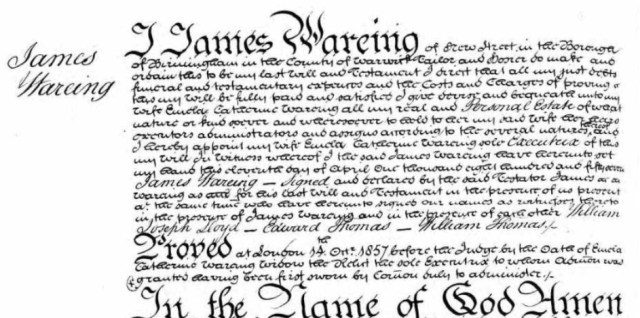 James
Wareing
I James Wareing of New Street, in the Borough
of Birmingham in the County of Warwick Tailor and do make and
ordain this to be my last will and Testament I direct that all my just debts
funeral and testamentary expences and the Costs and Charges of proving
this my will be fully paid and satisfied I give devise and bequeath unto my
wife Emela Catherine Wareing all my real and Personal Estate of what
nature or kind soever and wheresoever to hold to her my said wife her heirs
executors administrators and assigns according to the several natures thereof and
I hereby appoint my wife Emela Catherine Wareing sole Executrix of this
my will In witness whereof I the said James Wareing have hereunto set
my hand this eleventh day of April One thousand eight hundred and
James Wareing – Signed and declared by the said Testator James
Wareing as and for his last will and Testament in the presence of us present
at the same time who have hereunto signed our names as witnesses thereto
in the presence of James Wareing and in the presence of each other William
Joseph Lloyd – Edward Thomas – William Thomas
Proved at London 14th Octr. 1857 before the Judge by the Oath of Emela
Catherine Wareing Widow the Relict the sole Executrix to whom Admon was
granted having been first sworn by Comon duly to administer
In the Name of God Amen